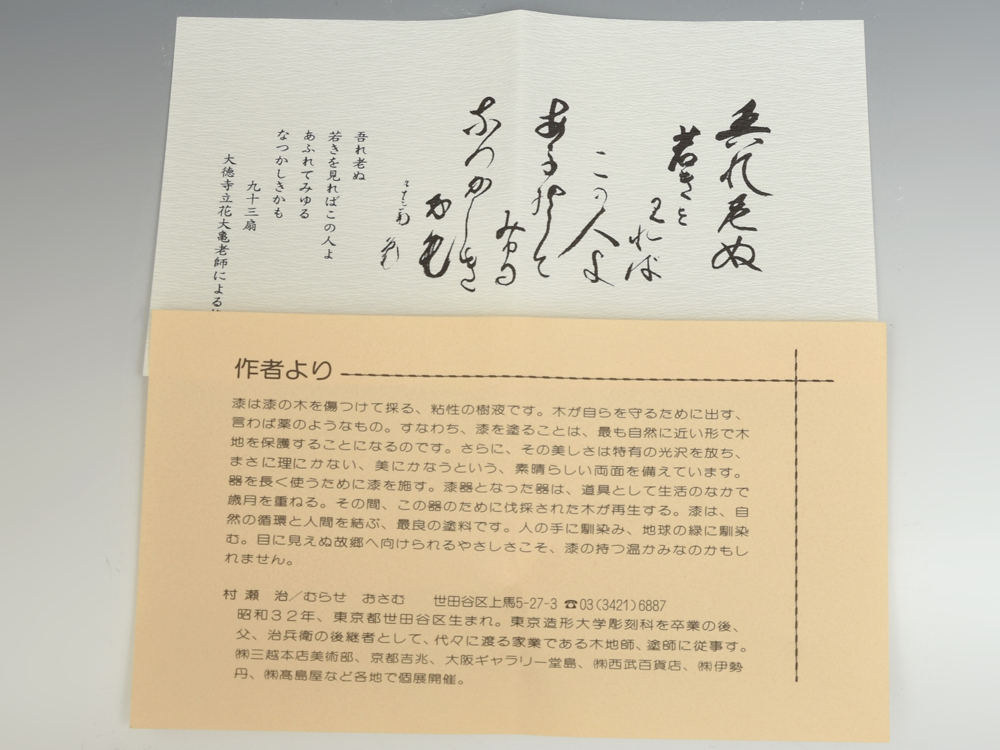 吾れ老ぬ
若きを
見れば
この人よ
あふれて
みゆる
なつかしき
かも
吾れ老ぬ
若きを見ればこの人よ
あふれてみゆる
なつかしきかも
九十三扇
大徳寺立花大亀老師による
作者より
漆は漆の木を傷つけて採る、粘性の樹液です。木が自らを守るために出す、
言わば薬のようなもの。すなわち、漆を塗ることは、最も自然に近い形で木
地を保護することになるのです。さらに、その美しさは特有の光沢を放ち、
まさに理にかない、美にかなうという、素晴らしい両面を備えています。
器を長く使うために漆を施す。漆器となった器は、道具として生活のなかで
歳月を重ねる。その間、この器のために伐採された木が再生する。漆は、自
然の循環と人間を結ぶ、最良の塗料です。人の手に馴染み、地球の緑に馴染
む。目に見えぬ故郷へ向けられるやさしさこそ、漆の持つ温かみなのかもし
れません。
村瀬 治/むらせ おさむ 世田谷区上馬5-27-3 ☎03(3421)6887
昭和32年、東京都世田谷区生まれ。東京造形大学彫刻科を卒業の後、
父、治兵衛の後継者として、代々に渡る家業である木地師、塗師に従事す。
㈱三越本店美術部、京都吉兆、大阪ギャラリー堂島、㈱西武百貨店、㈱伊勢
丹、㈱髙島屋など各地で個展開催。